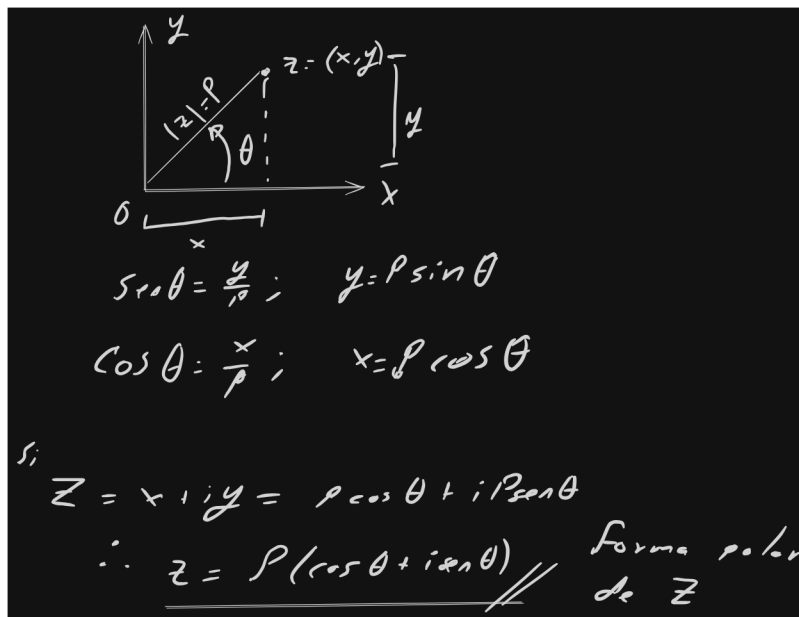 y
z = (x,y)
|z|=ρ
y
θ
x
0
x
senθ = y/ρ ; y = ρ sin θ
cos θ = x/ρ ; x = ρ cos θ
si
Z = x + iy = ρ cos θ + i ρ sen θ
∴ z = ρ(cos θ + i sen θ) Forma polar
de Z